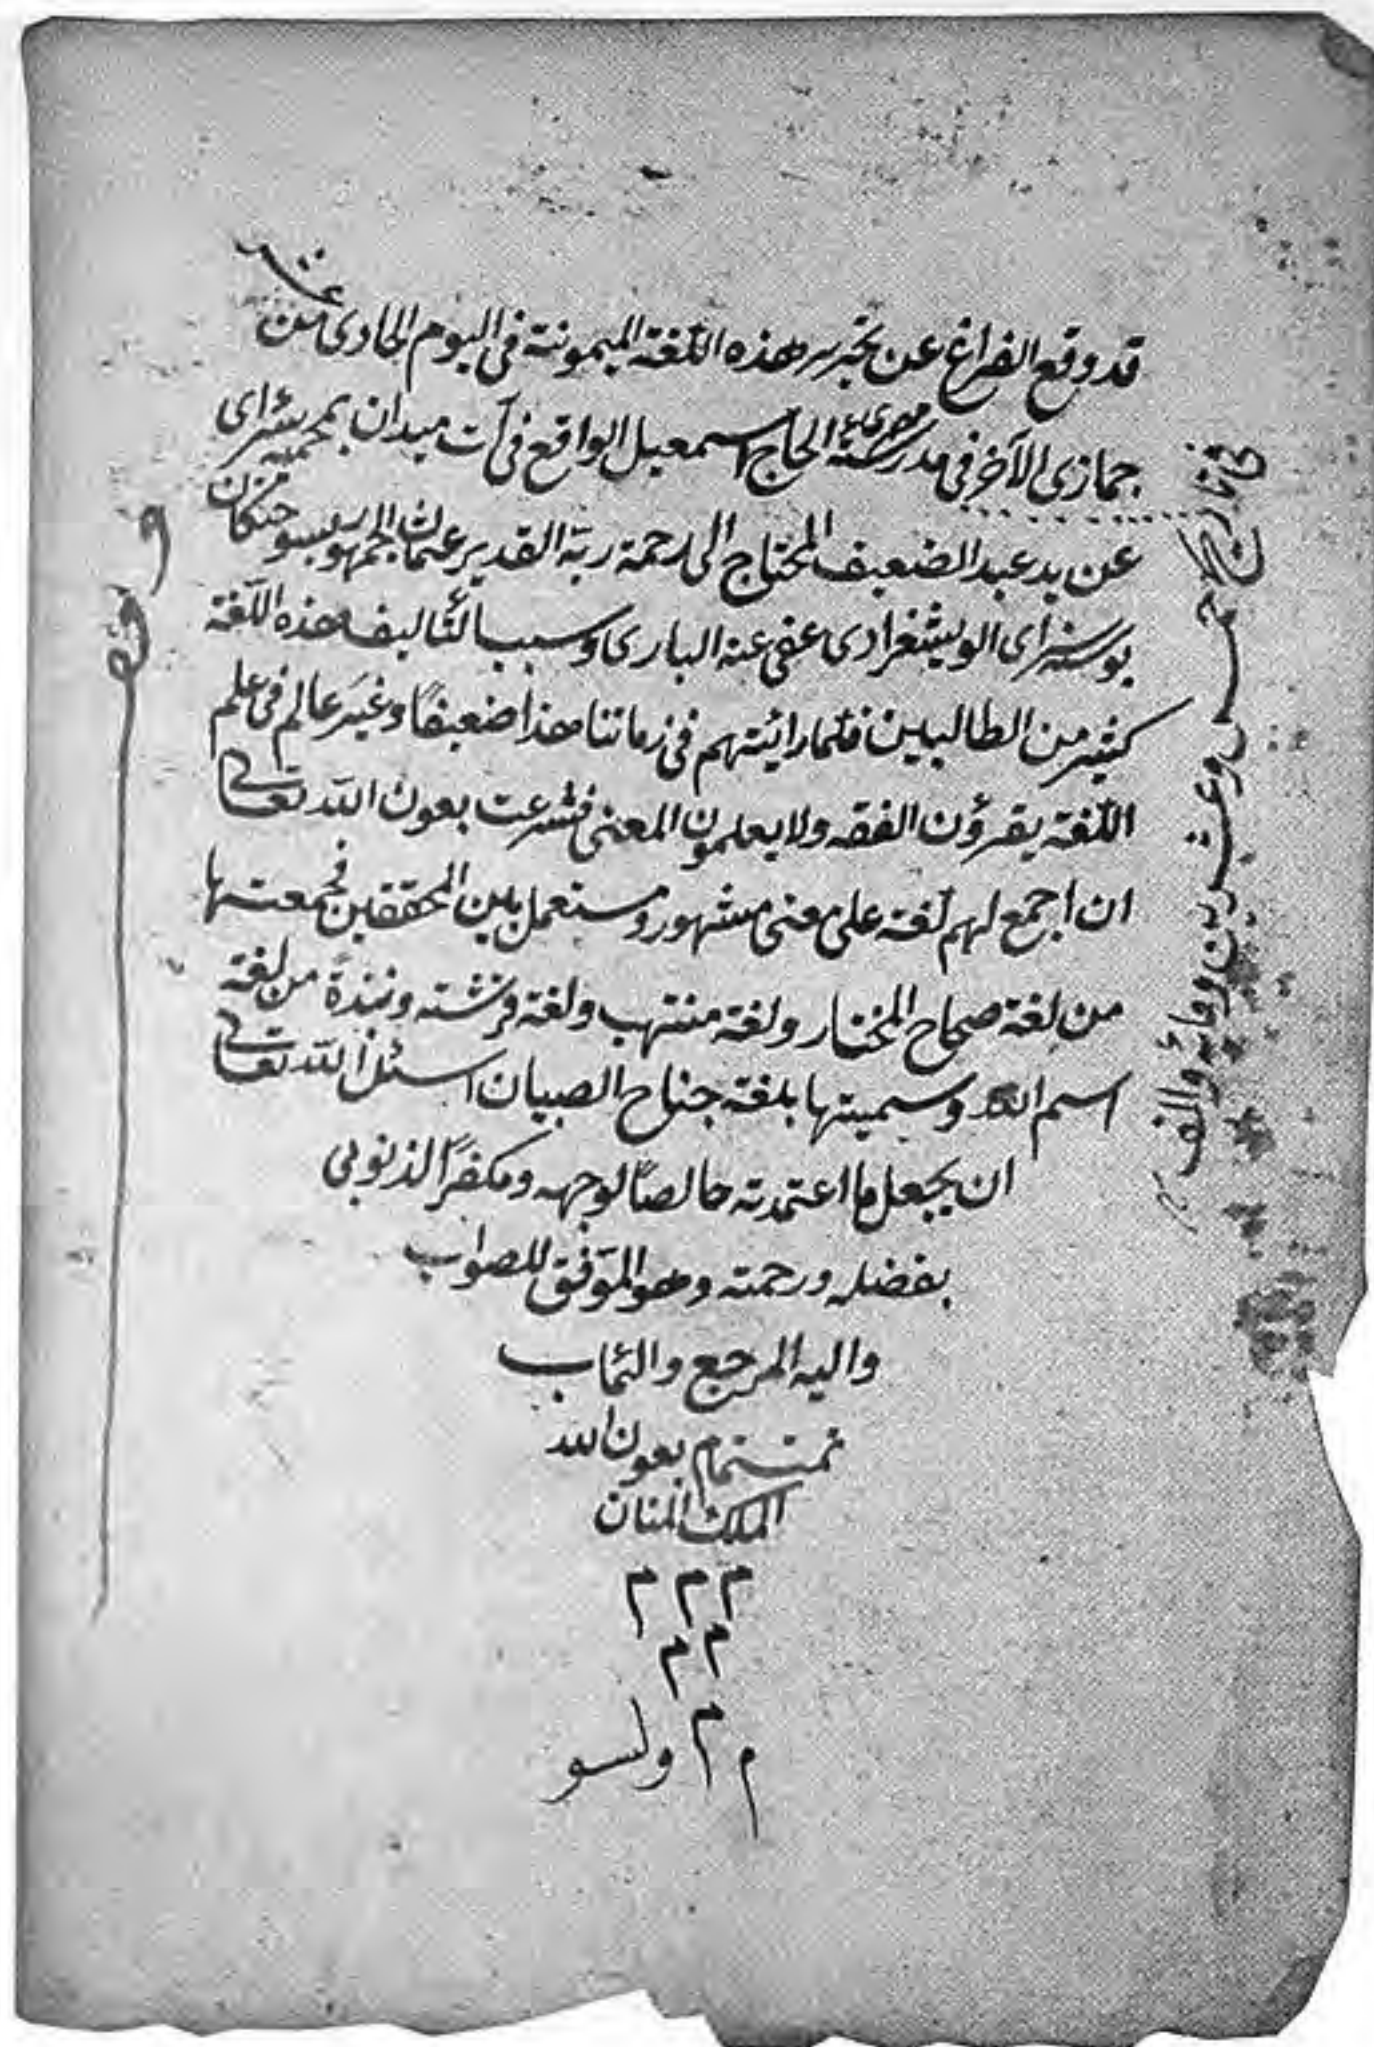 قد وقع الفراغ عن تحرير هذه اللغة الميمونة فى اليوم الحادى عشر من
جمازى الآخر فى مدرسة الحاج اسمعيل الواقع فى آت ميدان بمحميه سراى
عن يد عبد الضعيف المحتاج الى رحمة ربه القدير عثمان
بوسنه سراى الويشغرادى عفى عنه البارى وسبب التأليف هذه اللغة
كثير من الطالبين فلما رائيتهم فى زماننا هذا ضعيفًا وغيَر عالم فى علم
اللغة يقرؤن الفقه ولا يعلمون المعنى فشرعت بعون الله تعالى
ان اجمع لهم لغة على معنى مشهور ومستعمل بين المحققين فجمعتها
من لغة صحاح المختار ولغة منتهب ولغة فرشته ونبذةً من لغة
اسم الله وسميتها بلغة جناح الصبيان اسئل الله تعالى
ان يجعل ما اعتمدته خالصًا لوجهه ومكفرًا لذنوبى
بفضله ورحمته وهو الموّفق للصواب
واليه المرجع والمئاب
تمت تمام بعون الله
الملك المنان
م م م
م م
م
م
فى تاريخ خمس وعشرين ومائه والف
وقف